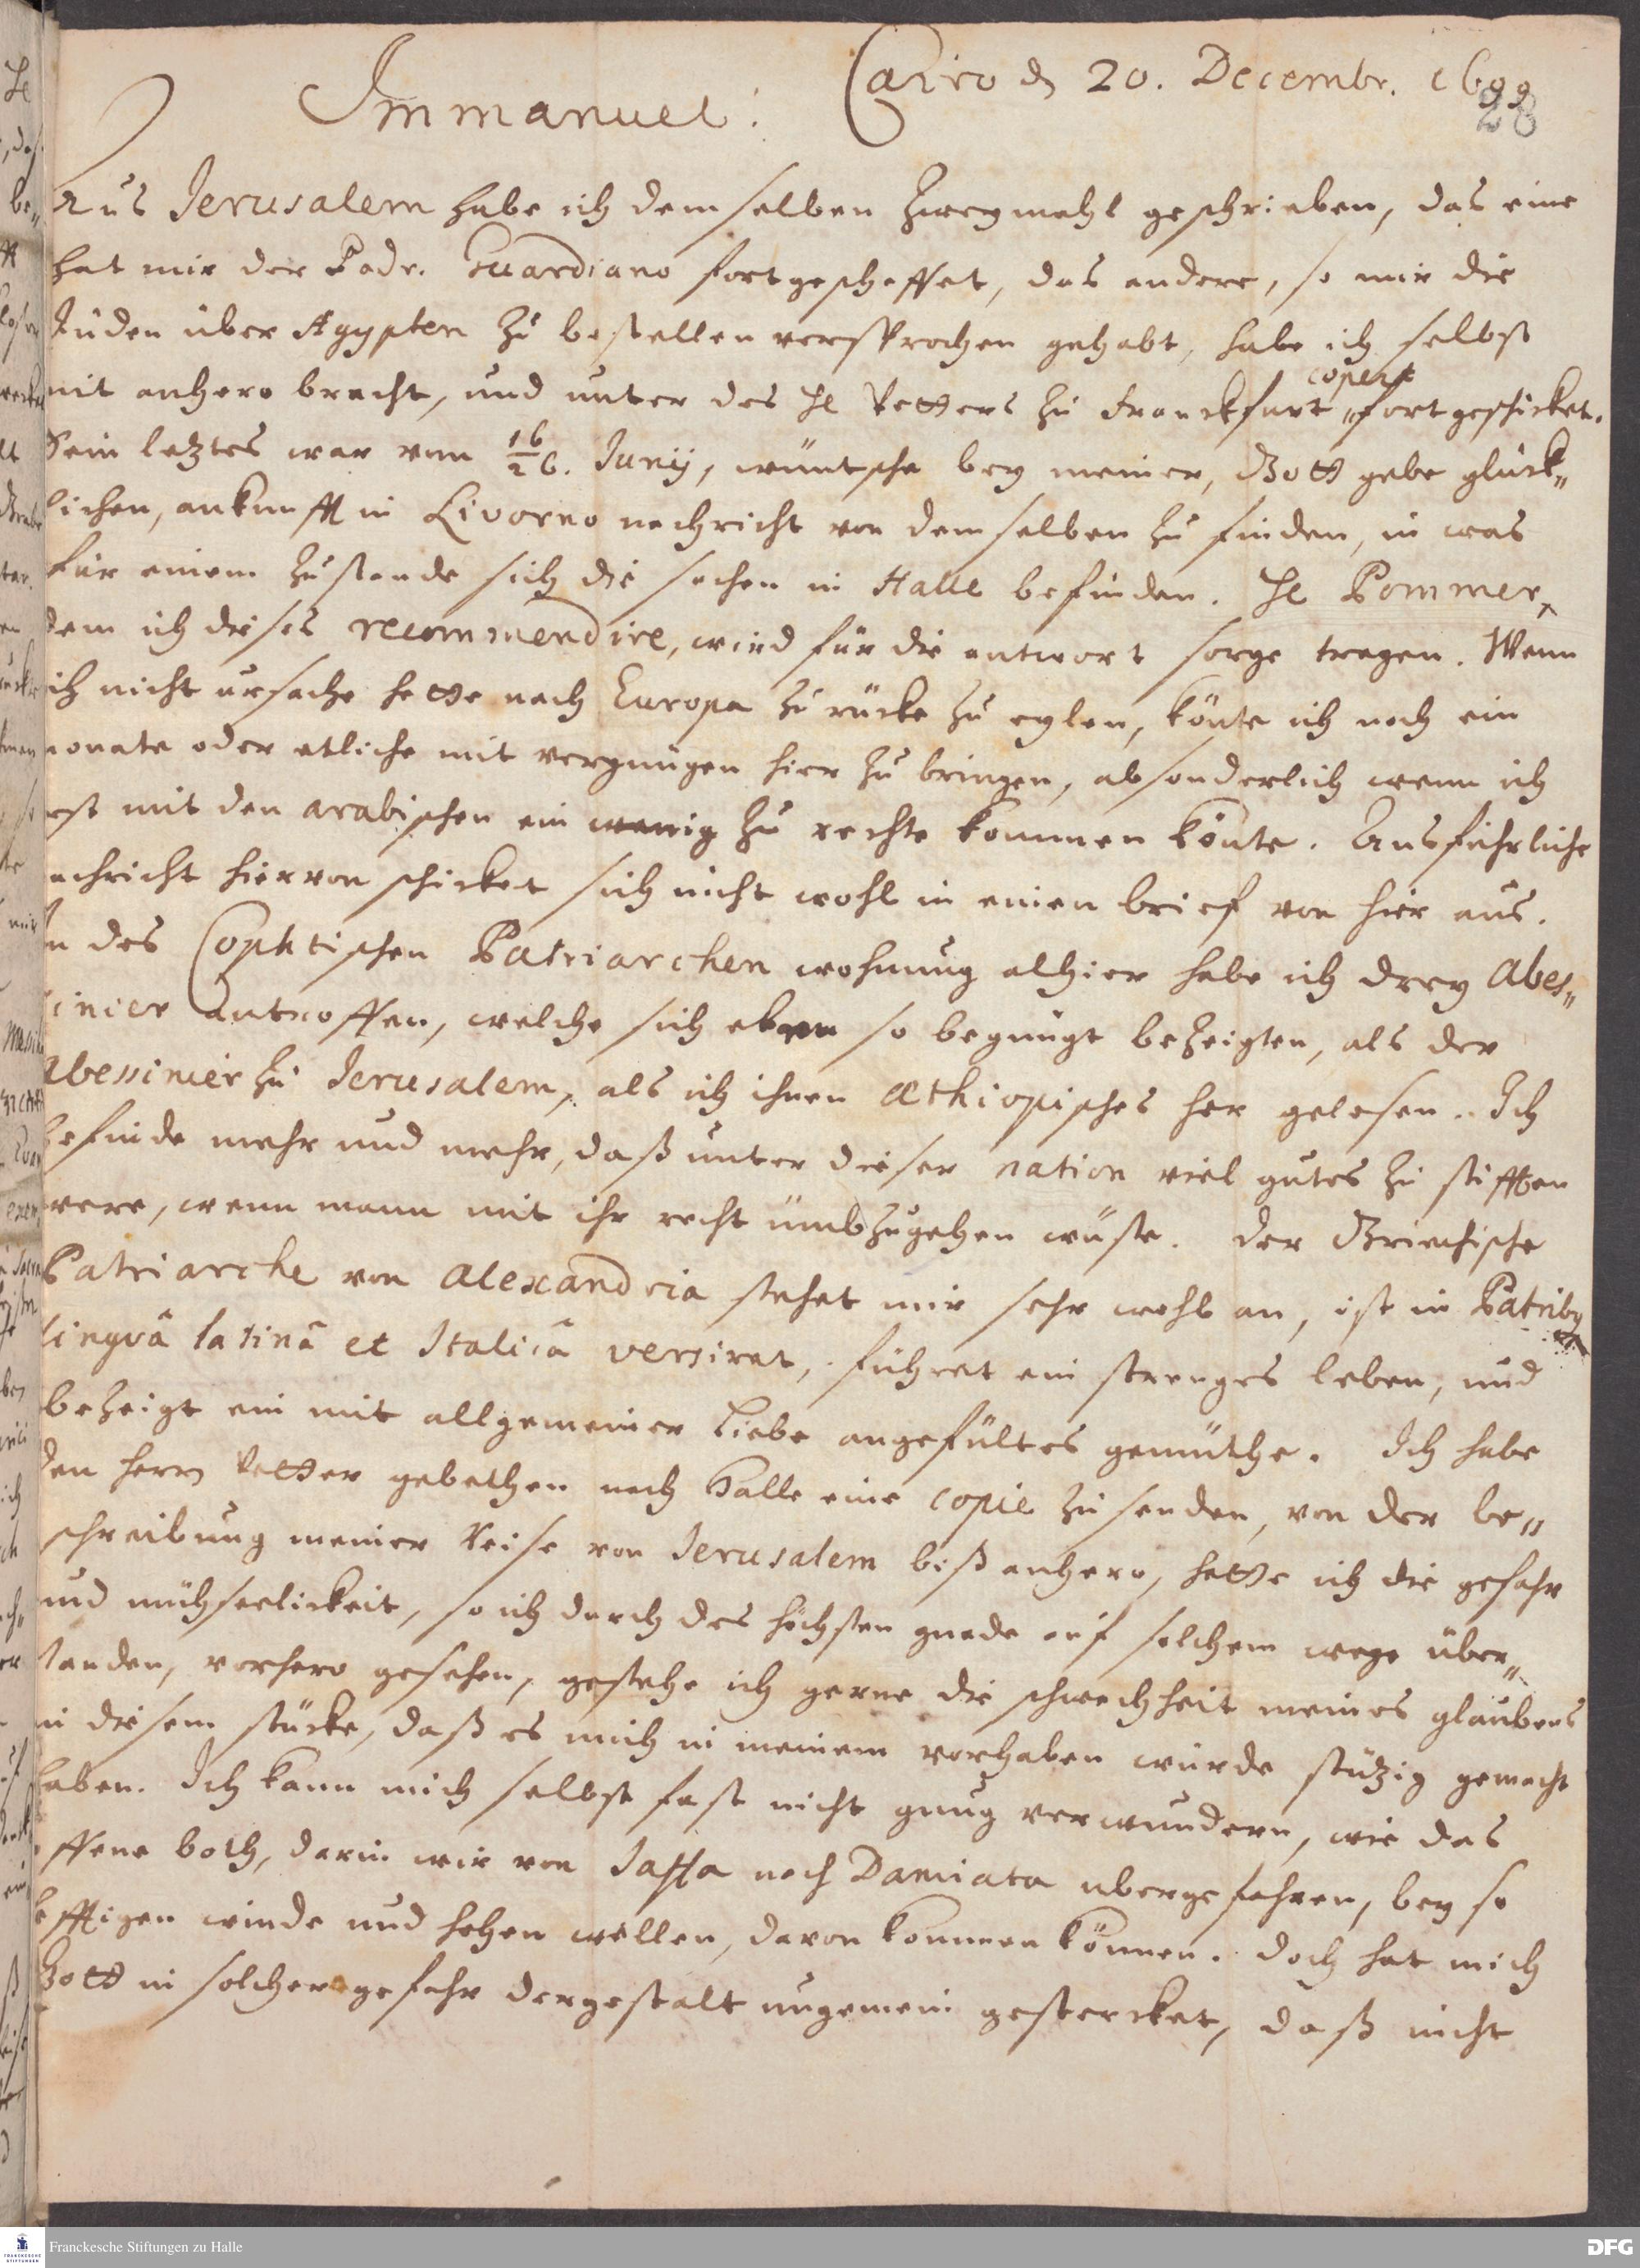 Cairo d 20. Decembr. 1699
28
Immanuel!
Aus Jerusalem habe ich demselben zweymahl geschrieben, das eine
hat mir der Padr. Guardiano fortgeschaffet, das andere, so mir die
Juden über Ægypten zu bestellen versprochen gehabt, habe ich selbst
mit anhero bracht, und unter des H Vetters zu Franckfurt copert fortgeschicket.
Sein letztes war vom 16/26. Junij, wüntsche bey meiner, Gott gebe glück„
lichen, ankunfft in Livorno nachricht von demselben zu finden, in was
für einem zustande sich die sachen in Halle befinden. H Pommer,
dem ich dieses recommendire, wird für die antwort sorge tragen. Wenn
ich nicht ursache hette nach Europa zu rücke zu eylen, könte ich noch ein
monate oder etliche mit vergnügen hier zu bringen, absonderlich wenn ich
erst mit den arabischen ein wenig zu rechte kommen könte. Ausführliche
nachricht hiervon schicket sich nicht wohl in einen brief von hier aus.
In des Cophtischen Patriarchen wohnung alhier habe ich drey Abes„
sinier antroffen, welche sich eben so begnügt bezeigten, als der
Abessinier zu Jerusalem, als ich ihnen Æthiopisches her gelesen. Ich
befinde mehr und mehr, daß unter dieser nation viel gutes zu stifften
were, wenn mann mit ihr recht ümbzugehen wüste. Der Griechische
Patriarche von Alexandria stehet mir sehr wohl an, ist in Patribus
linguâ latinâ et Italicâ versiret, führet ein strenges leben, und
bezeigt ein mit allgemeiner Liebe angefültes gemüthe. Ich habe
den herrn Vetter gebethen nach Halle eine copie zu senden, von der be„
schreibung meiner Reise von Jerusalem biß anhero, hette ich die gefahr
und mühseelickeit, so ich durch des höchsten gnade auf solchem wege über„
standen, vorhero gesehen, gestehe ich gerne die schwachheit meines glaubens
in diesem stücke, daß es mich in meinem vorhaben würde stützig gemacht
haben. Ich kann mich selbst fast nicht gnug verwundern, wie das
offene both, darin wir von Jaffa nach Damiata ubergefahren, bey so
hefftigen winde und hohen wellen, davon kommen können. Doch hat mich
Gott in solcher gefahr dergestalt ungemein gestercket, daß nicht
Franckesche Stiftungen zu Halle
DFG